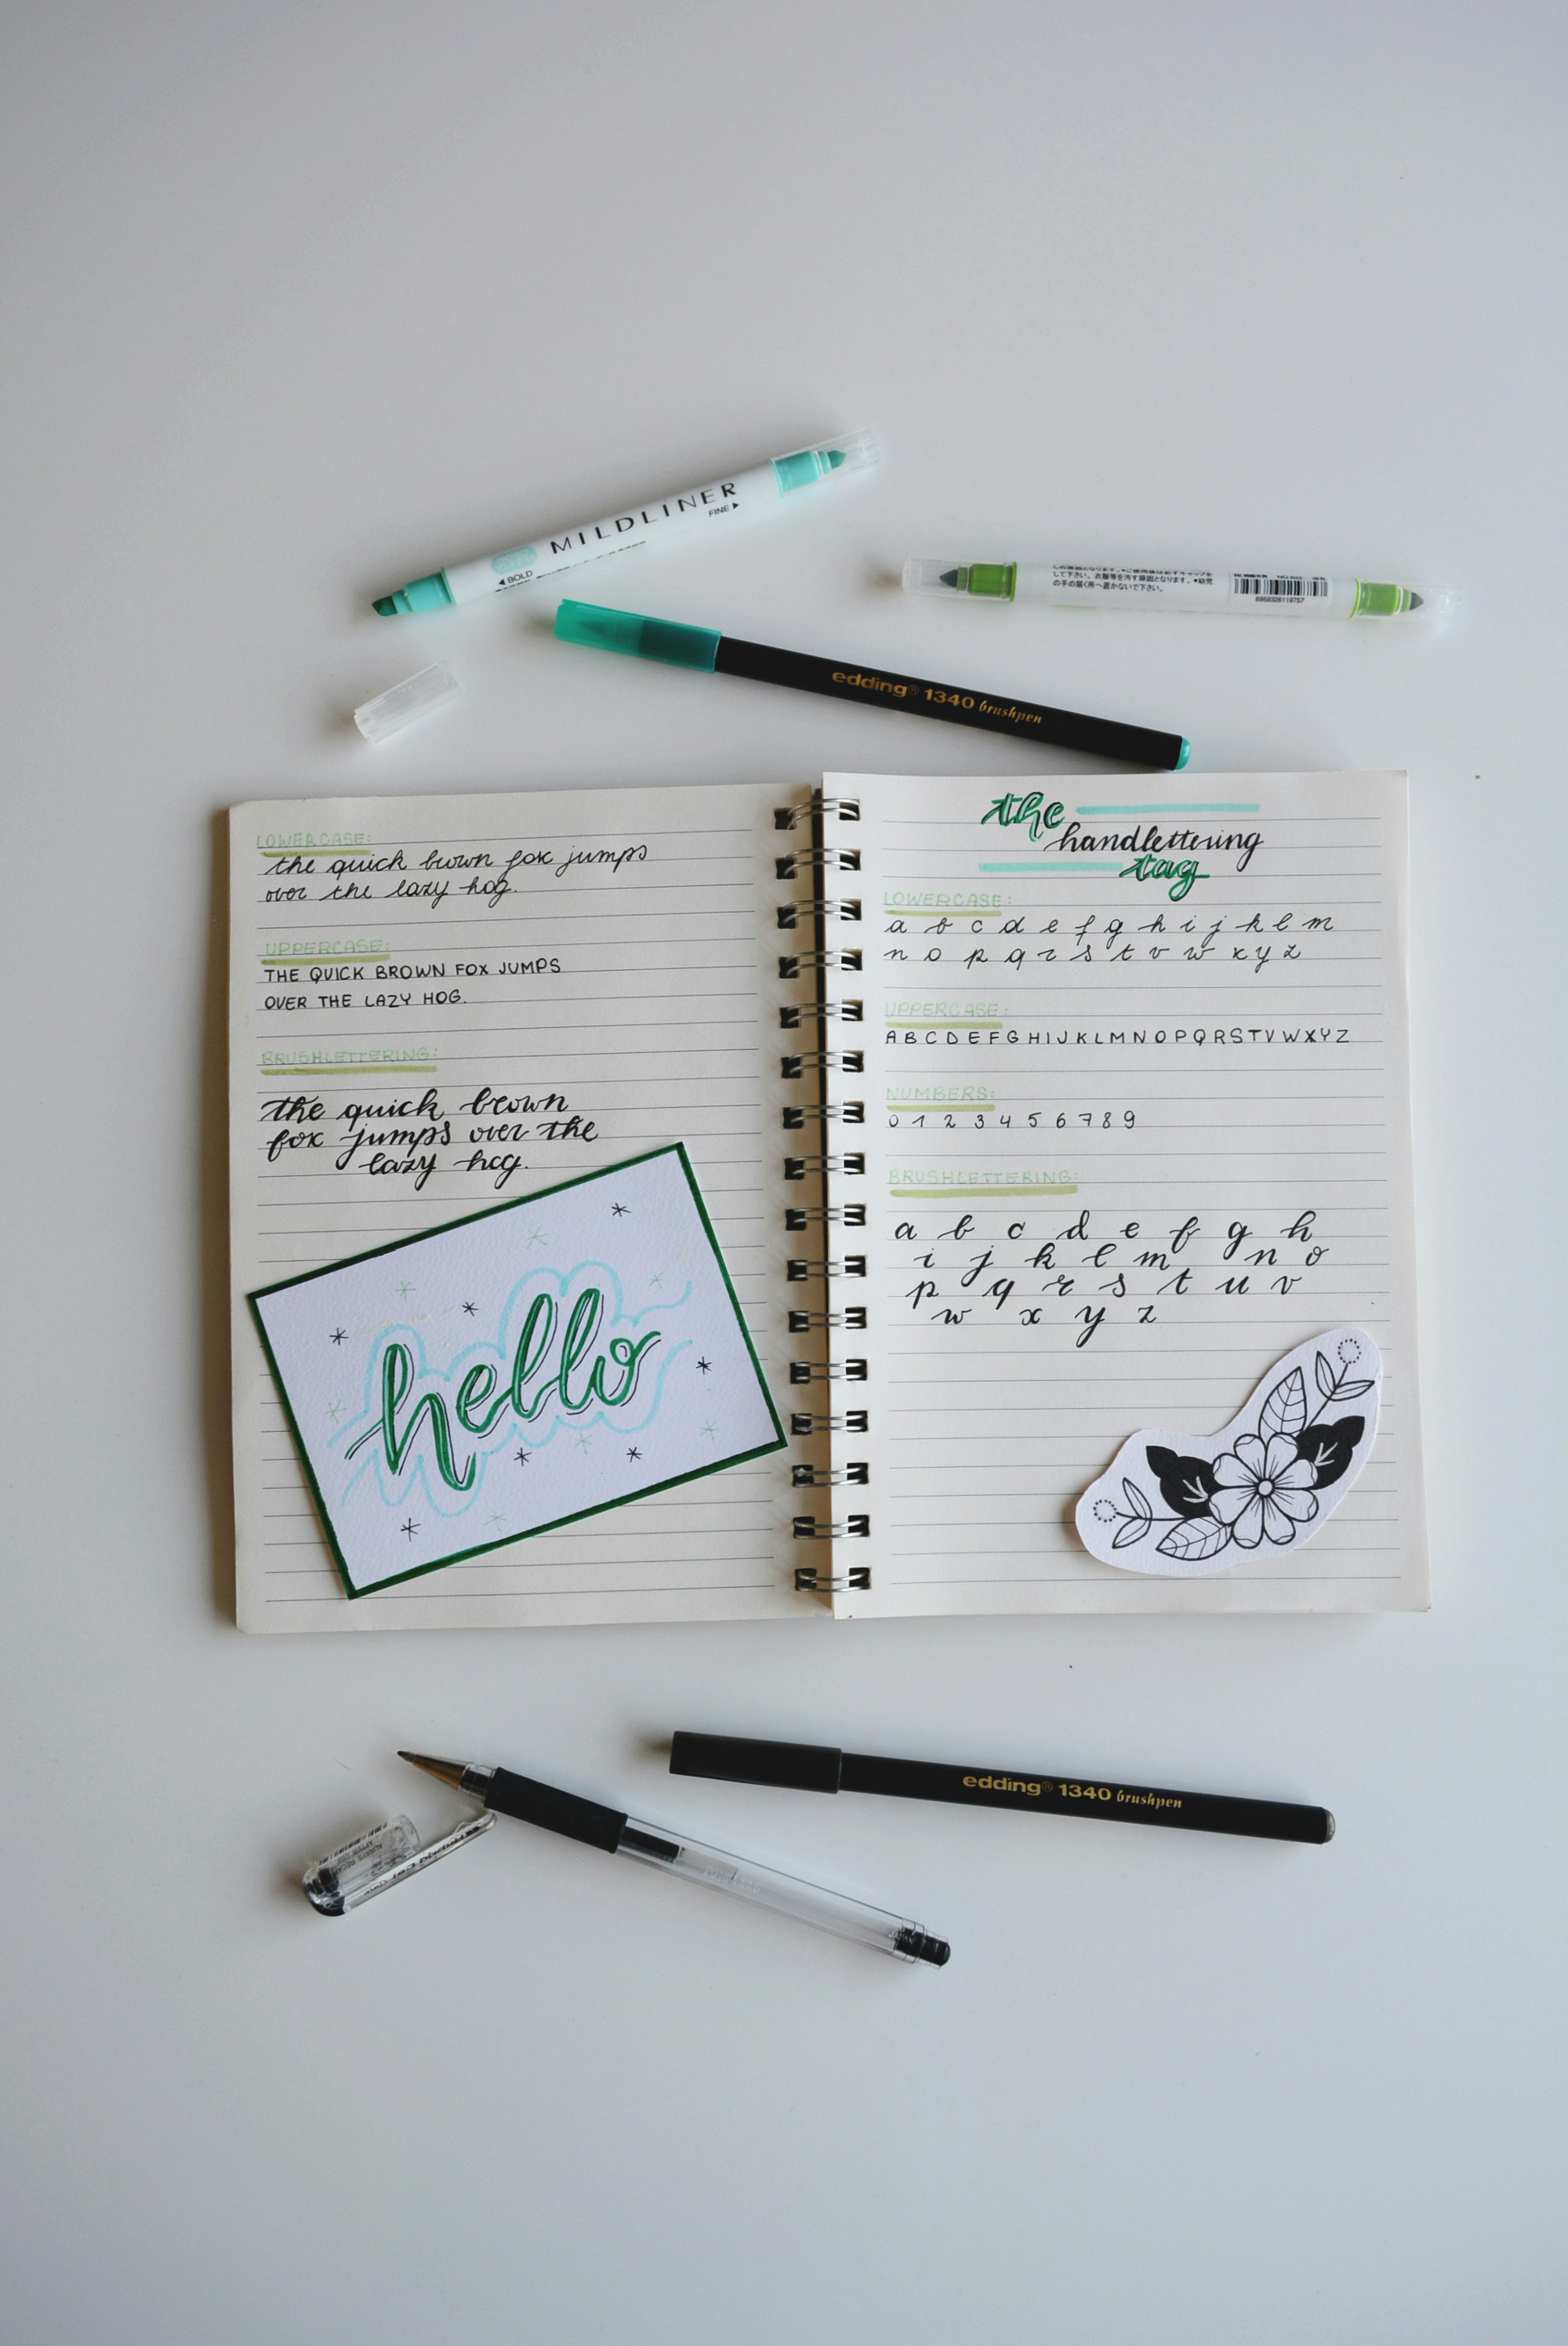 MILDLINER
FINE
BOLD
して下さい。衣類等を汚す原因となります。•幼児
の手の届く所へ置かないで下さい。
edding® 1340 brushpen
LOWERCASE:
the quick brown fox jumps
over the lazy hog.
UPPERCASE:
THE QUICK BROWN FOX JUMPS
OVER THE LAZY HOG.
BRUSHLETTERING:
the quick brown
fox jumps over the
lazy hog.
hello
the
handlettering
tag
LOWERCASE:
a b c d e f g h i j k l m
n o p q r s t v w x y z
UPPERCASE:
A B C D E F G H I J K L M N O P Q R S T V W X Y Z
NUMBERS:
0 1 2 3 4 5 6 7 8 9
BRUSHLETTERING:
a b c d e f g h
i j k l m n o
p q r s t u v
w x y z
edding® 1340 brushpen